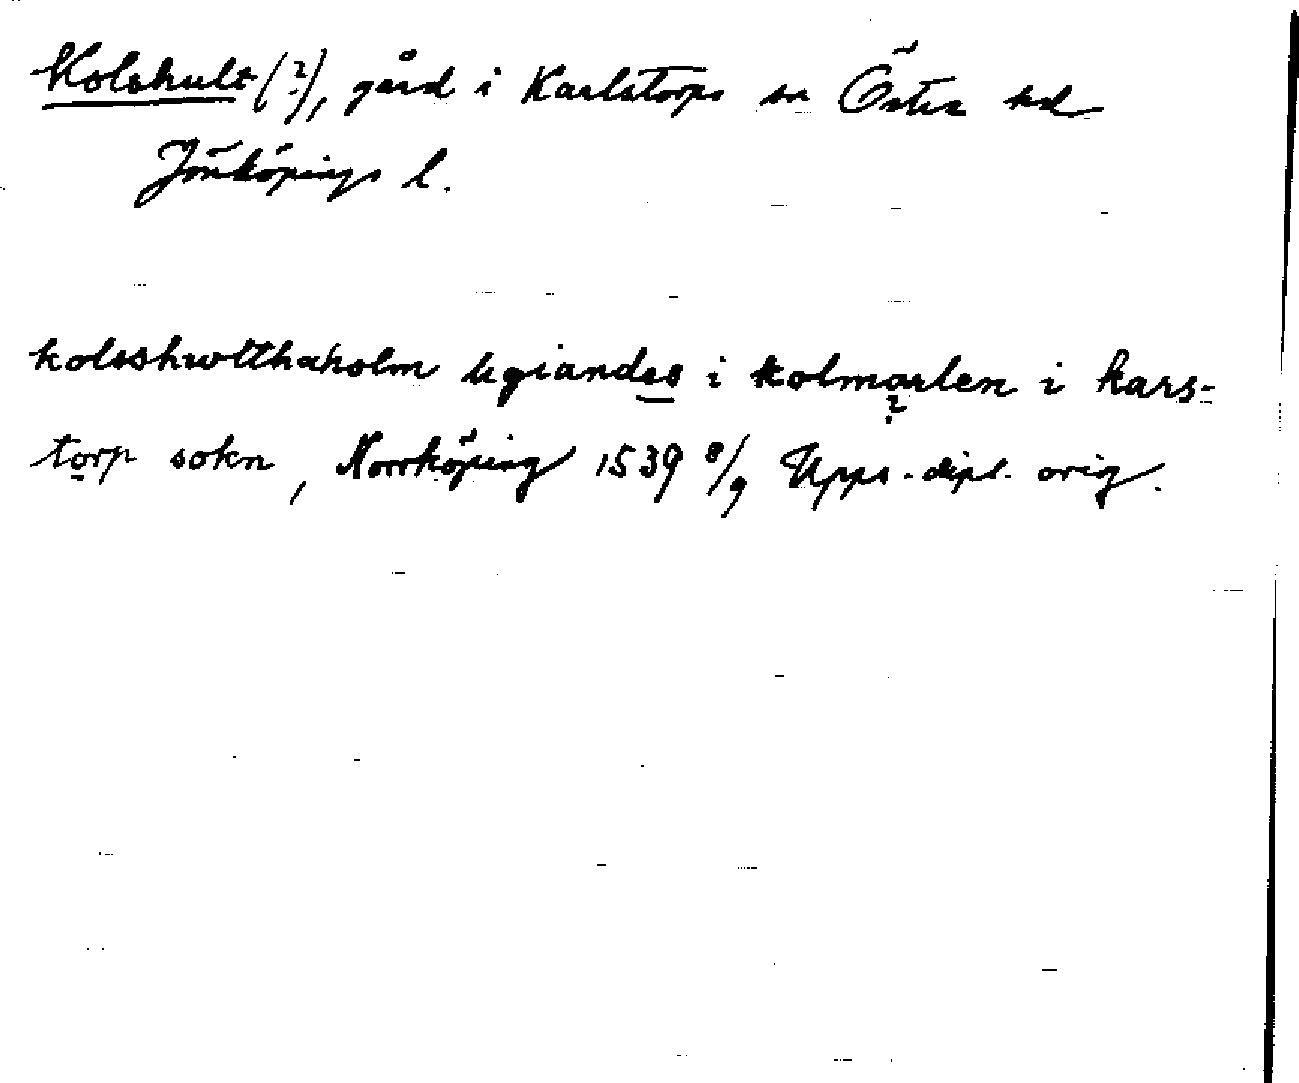 Kolshult (?), gård i Karlstorps sn Östra hd
Jönköpings l.
kolsshwltthaholm ligiandes i kolmarlen i kars-
?
torp sokn, Norrköping 1539 8/9 Upps. dipl. orig.